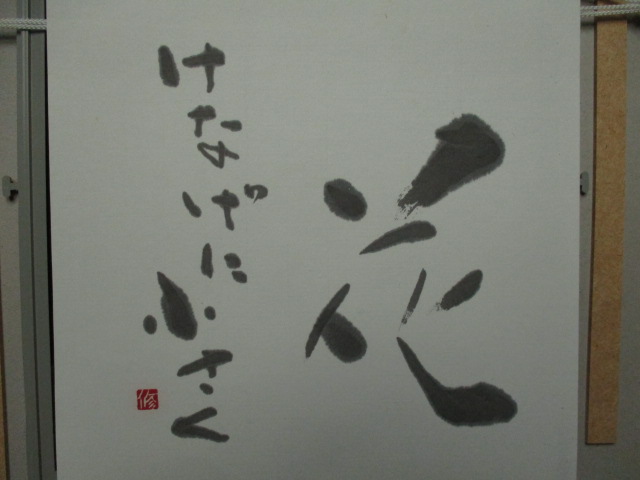 花
けなげに
さく
修